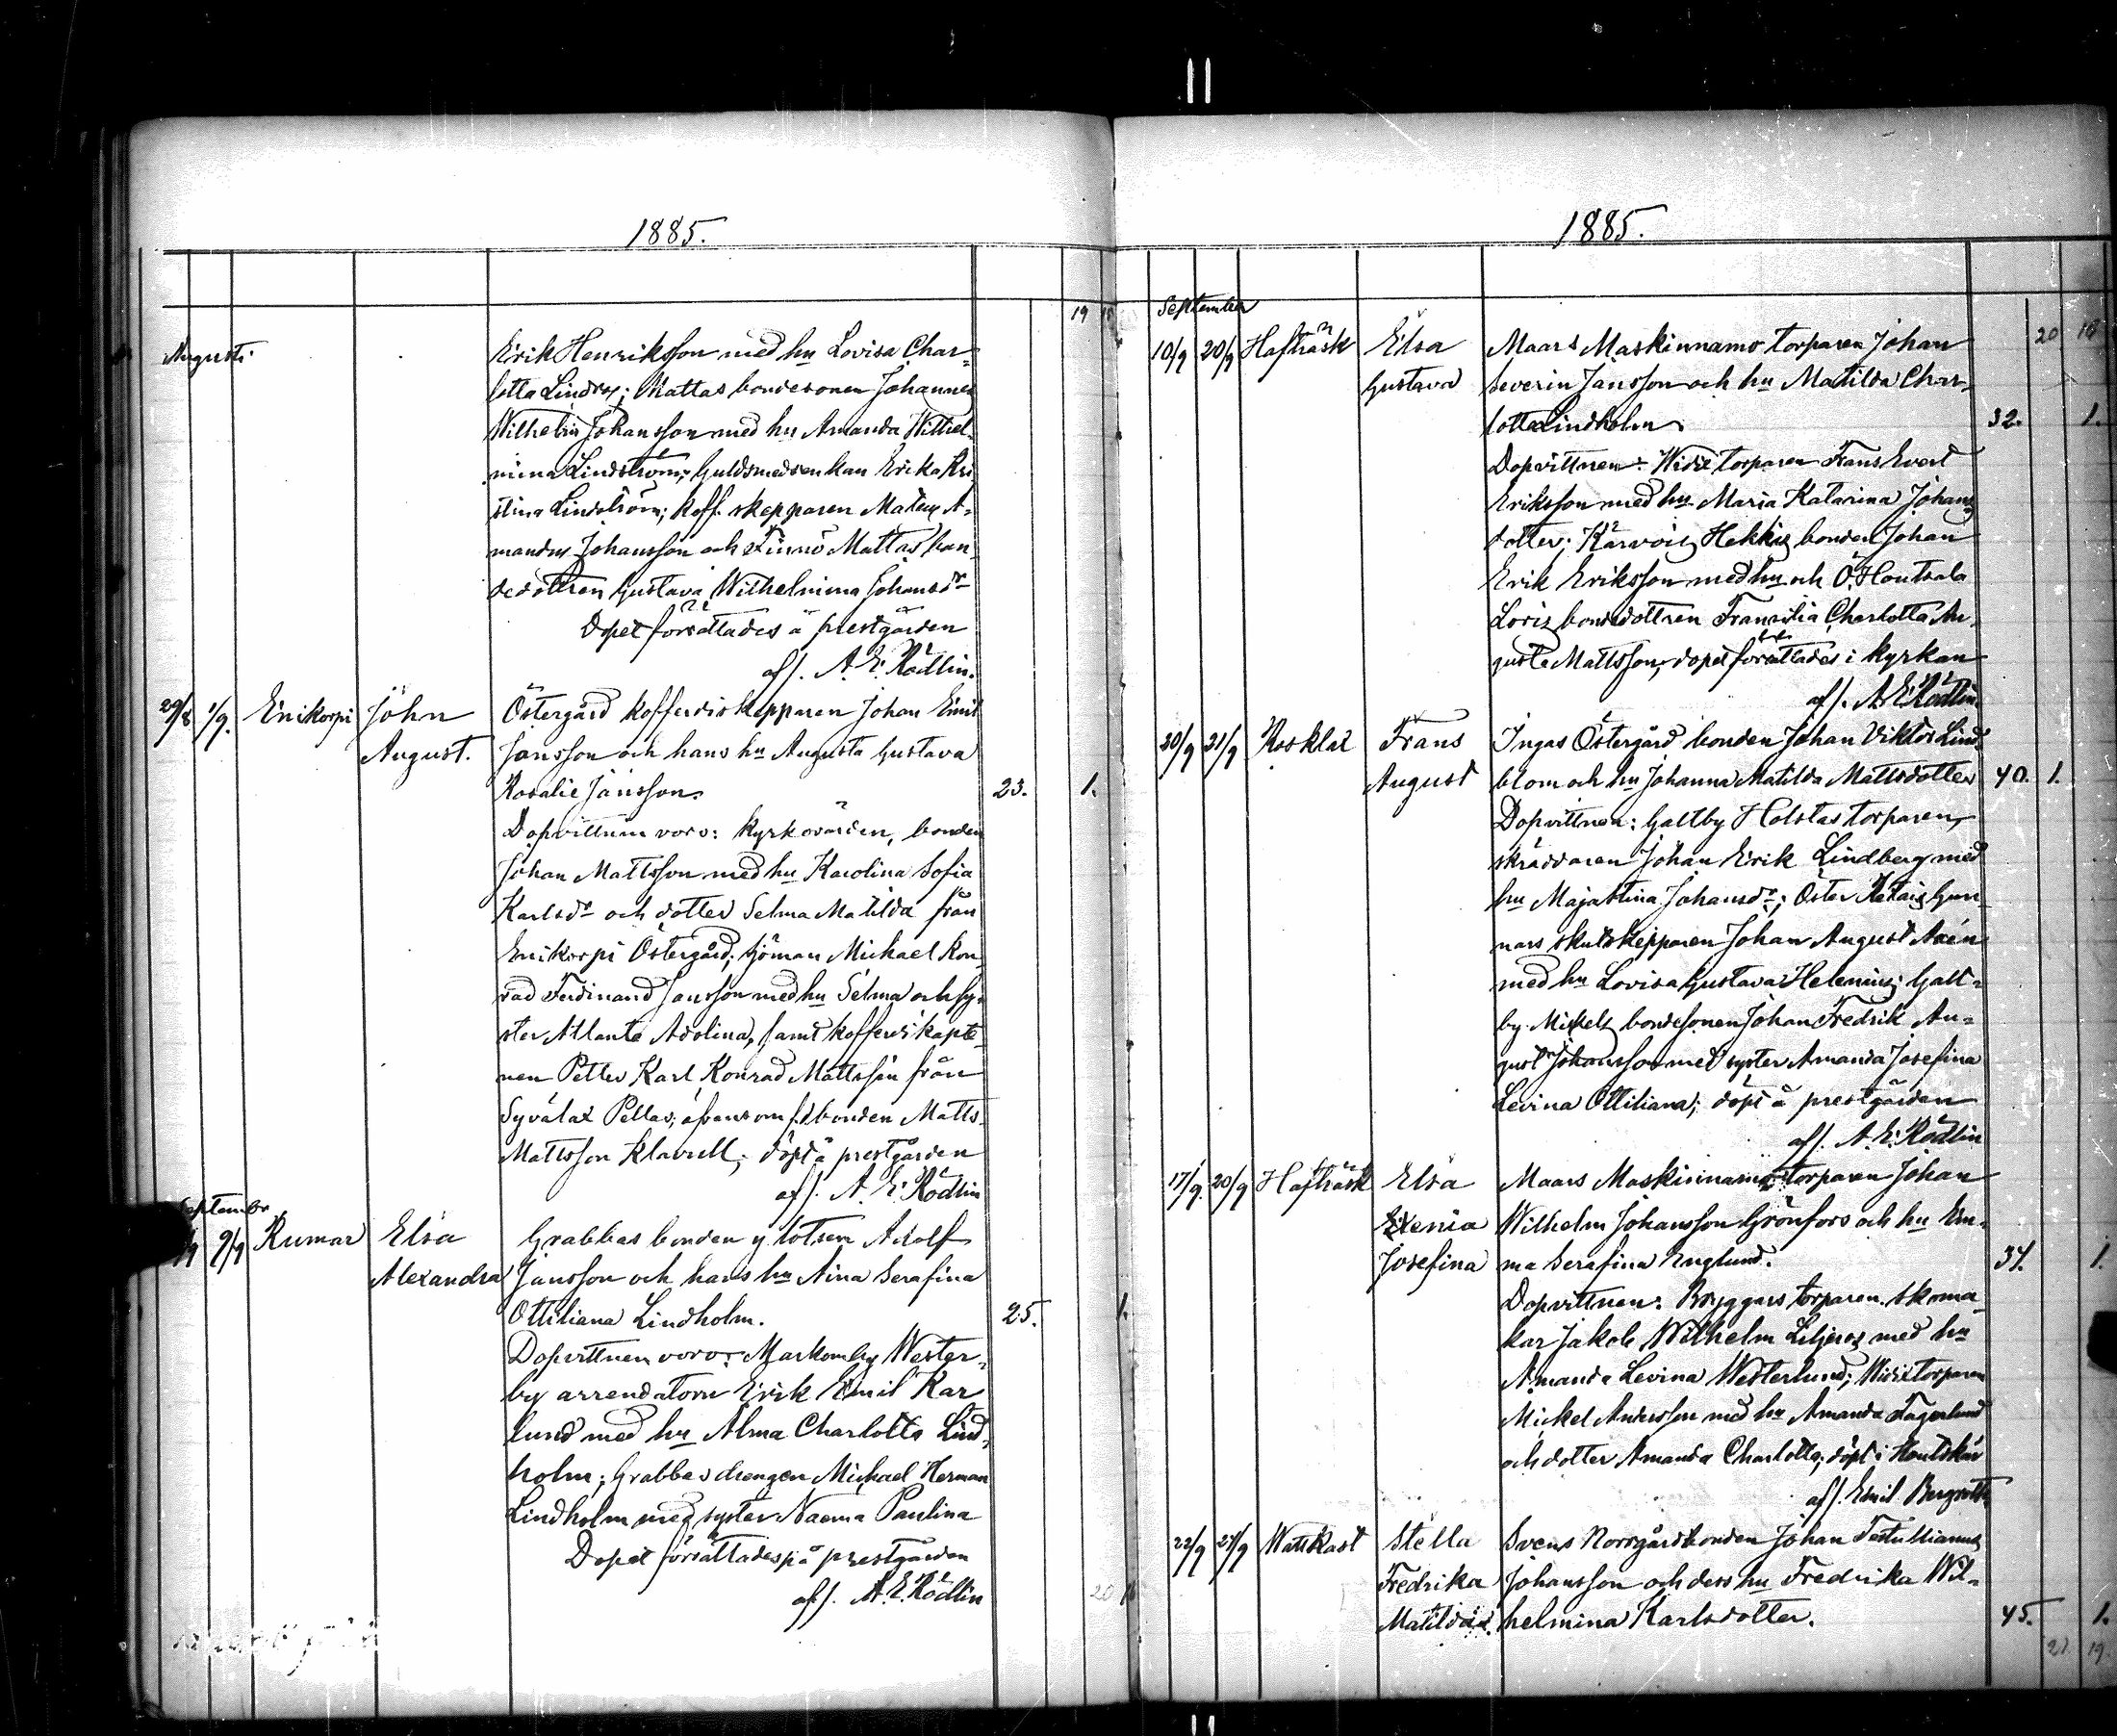 1885.
19
Augusti.
Erik Henriksson med hu Lovisa Char-
lotta Lindros; Mattas bondesonen Johannes
Wilhelm Johansson med hu Amanda Wilhel-
mina Lindström; Guldsmedsenkan Erika Kri
stina Lindström; koff. skepparen Mateus A-
mandus Johansson och Finnö Mattas bon
dedottren Gustava Wilhelmina Johansdr
Dopet förrättades å prestgården
af/. A. E. Rödlin.
29/8 1/9. Enikorpi John Östergård kofferdiskepparen Johan Emil
August. Jansson och hans hu Augusta Gustava
Rosalie Jansson. 23. 1.
Dopvittnen voro: kyrkovärden, bonden
Johan Mattsson med hu Karolina Sofia
Karlsdr och dotter Selma Matilda från
Enikorpi Östergård; sjöman Michael Kon-
rad Ferdinand Jansson med hu Selma och sy-
ster Atlanta Adolina, samt kofferdikapte-
nen Petter Karl Konrad Mattsson från
Syvälax Pellas; äfvensom f.d bonden Matts
Mattsson Klavell; döpt å prestgården
af/. A. E. Rödlin
September
/9 9/9 Rumar Elsa Grabbas bonden y lotsen Adolf
Alexandra Jansson och hans hu Aina Serafina
Ottiliana Lindholm. 25. 1.
Dopvittnen voro: Markomby Wester-
by arrendatorn Erik Emil Kar
lund med hu Alma Charlotta Lind-
holm; Grabbas drengen Michael Herman
Lindholm med syster Naema Paulina
Dopet förrättades på prestgården
af/. A. E. Rödlin
20
1885.
20 18
September
10/9 20/9 Hafträsk Elsa Maars Maskinnamo torparen Johan
Gustava Severin Jansson och hu Matilda Char-
lotta Lindholm 32. 1.
Dopvittnen: Widix torparen Frans Evert
Eriksson med hu Maria Katarina Johans
dotter; Kärvois Hekkis bonden Johan
Erik Eriksson med hu och Ö. Houtsala
Loris bondedottren Fransilia Charlotta Au-
gusta Mattsson, dopet förrättades i kyrkan
af/. A. E. Rödlin.
20/9 21/9 Rosklax Frans Ingas Östergård bonden Johan Viktor Lind-
August blom och hu Johanna Matilda Mattsdotter 40. 1.
Dopvittnen: Galtby Holstas torparen,
skräddaren Johan Erik Lindberg med
hu Majastina Johansdr; Öster Retais Gun-
nars skutskepparen Johan August Axén
med hu Lovisa Gustava Helenius; Galt-
by Mickels bondesonen Johan Fredrik Au-
gust Johansson med syster Amanda Josefina
Levina Ottiliana; döpt å prestgården
af/. A. E. Rödlin
17/9. 20/9 Hafträsk Elsa Maars Maskinnamo torparen Johan
Exenia Wilhelm Johansson Grönfors och hu Em-
Josefina ma Serafina Englund. 34. 1.
Dopvittnen: Bryggars torparen skoma-
kar Jakob Wilhelm Liljeros med hu
Amanda Levina Westerlund; Widix torparen
Mickel Andersson med hu Amanda Fagerlund
och dotter Amanda Charlotta; döpt i Houtskär
af/. Emil Bergroth
22/9 27/9 Wattkast Stella Svens Norrgård bonden Johan Tertullianus
Fredrika Johansson och dess hu Fredrika Wil-
Matilda. helmina Karlsdotter. 45. 1.
21 19.